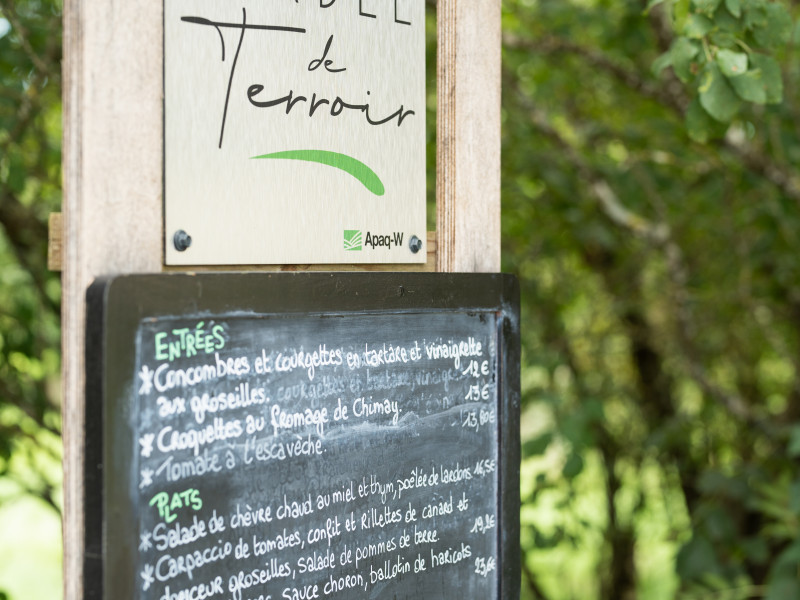 de
Terroir
Apaq-W
ENTRÉES
* Concombres et courgettes en tartare et vinaigrette
aux groseilles. 12€
* Croquettes au fromage de Chimay. 15€
* Tomate à l'escavèche. 13,80€
PLATS
* Salade de chèvre chaud au miel et thym, poêlée de lardons 16,5€
* Carpaccio de tomates, confit et rillettes de canard et
douceur groseilles, salade de pommes de terre. 19,2€
sauce choron, ballotin de haricots 23,6€